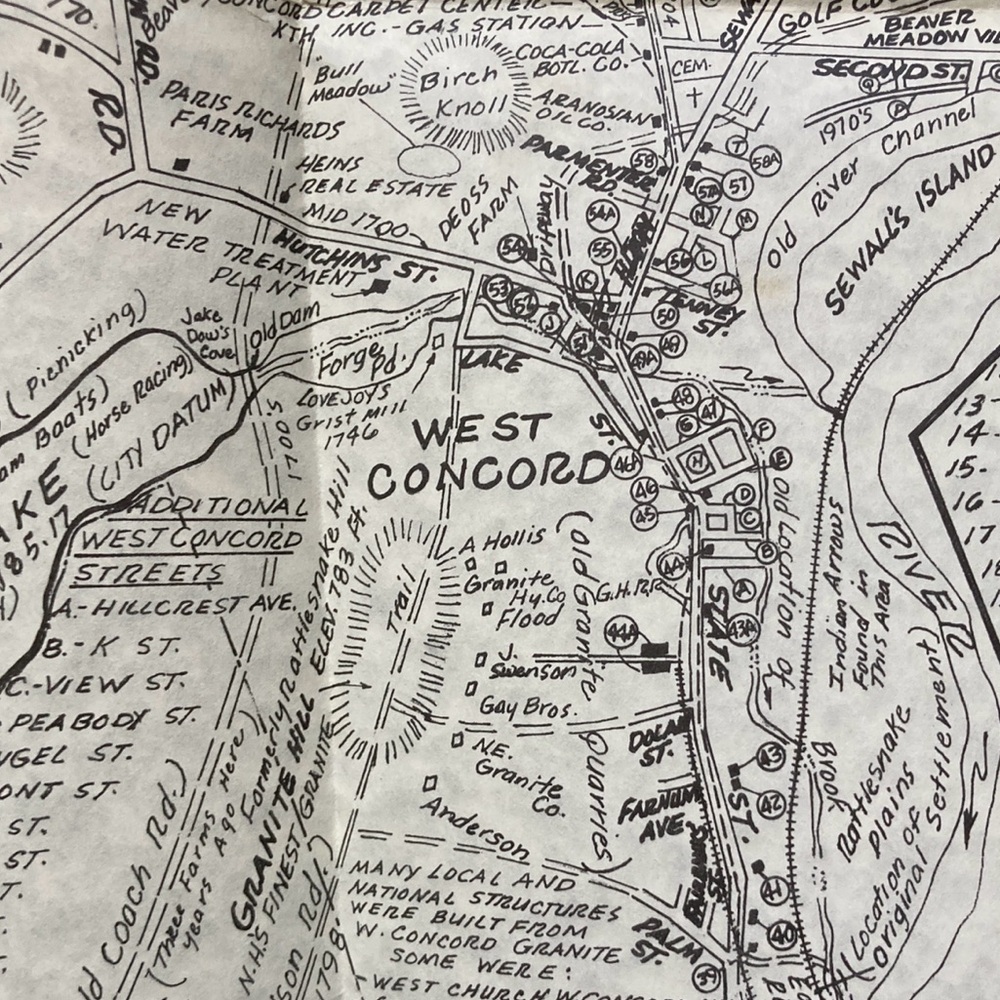 CONCORD CARPET CENTER-
XTH INC.-GAS STATION
GOLF
BEAVER
MEADOW
SECOND ST.
CEM.
COCA-COLA
BOTL. CO.
"Bull
Meadow"
Birch
Knoll
ARANOSIAN
OIL CO.
RD.
RD.
PARIS RICHARDS
FARM
1970's
Old River Channel
SEWALL'S ISLAND
PARMENTER
RD.
HEINS
REAL ESTATE
MID 1700
DEOSS
FARM
NEW
WATER TREATMENT
PLANT
HUTCHINS ST.
58
T
58A
57A
57
N
M
54A
55
54
56
L
56A
K
53
52
J
51
50
49
49A
TENNEY
ST.
(Picnicking)
Jake
Dow's
Cove
Old Dam
Forge Pd.
LAKE
ST.
(Horse Racing)
(CITY DATUM)
LOVEJOYS
Grist Mill
1746
1700's
WEST
CONCORD
48
47
G
F
H
E
46A
46
45
D
C
B
44A
A
43A
ADDITIONAL
WEST CONCORD
STREETS
A.-HILLCREST AVE.
B.-K ST.
C.-VIEW ST.
PEABODY ST.
ST.
ST.
ST.
Formerly Rattlesnake Hill
ELEV. 783 Ft.
GRANITE HILL
N.H'S FINEST GRANITE
Trail
A Hollis
Granite
Hy. Co
Flood
G.H.R.R.
J.
Swenson
Gay Bros.
N.E.
Granite
Co.
Anderson
(Old Granite Quarries)
44A
STATE
ST.
DOLAN
ST.
FARNUM
AVE.
PALM
ST.
43
42
41
40
39
Old Location of
Brook
Indian Arrows
Found in
This Area
RIVER
Rattlesnake
Plains
(Location of
Original
Settlement)
13-
14-
15-
16-
17
18
Coach Rd.)
(Three Farms
Years Ago Here)
Rd.)
1798
MANY LOCAL AND
NATIONAL STRUCTURES
WERE BUILT FROM
W. CONCORD GRANITE
SOME WERE:
WEST CHURCH W. CONCORD